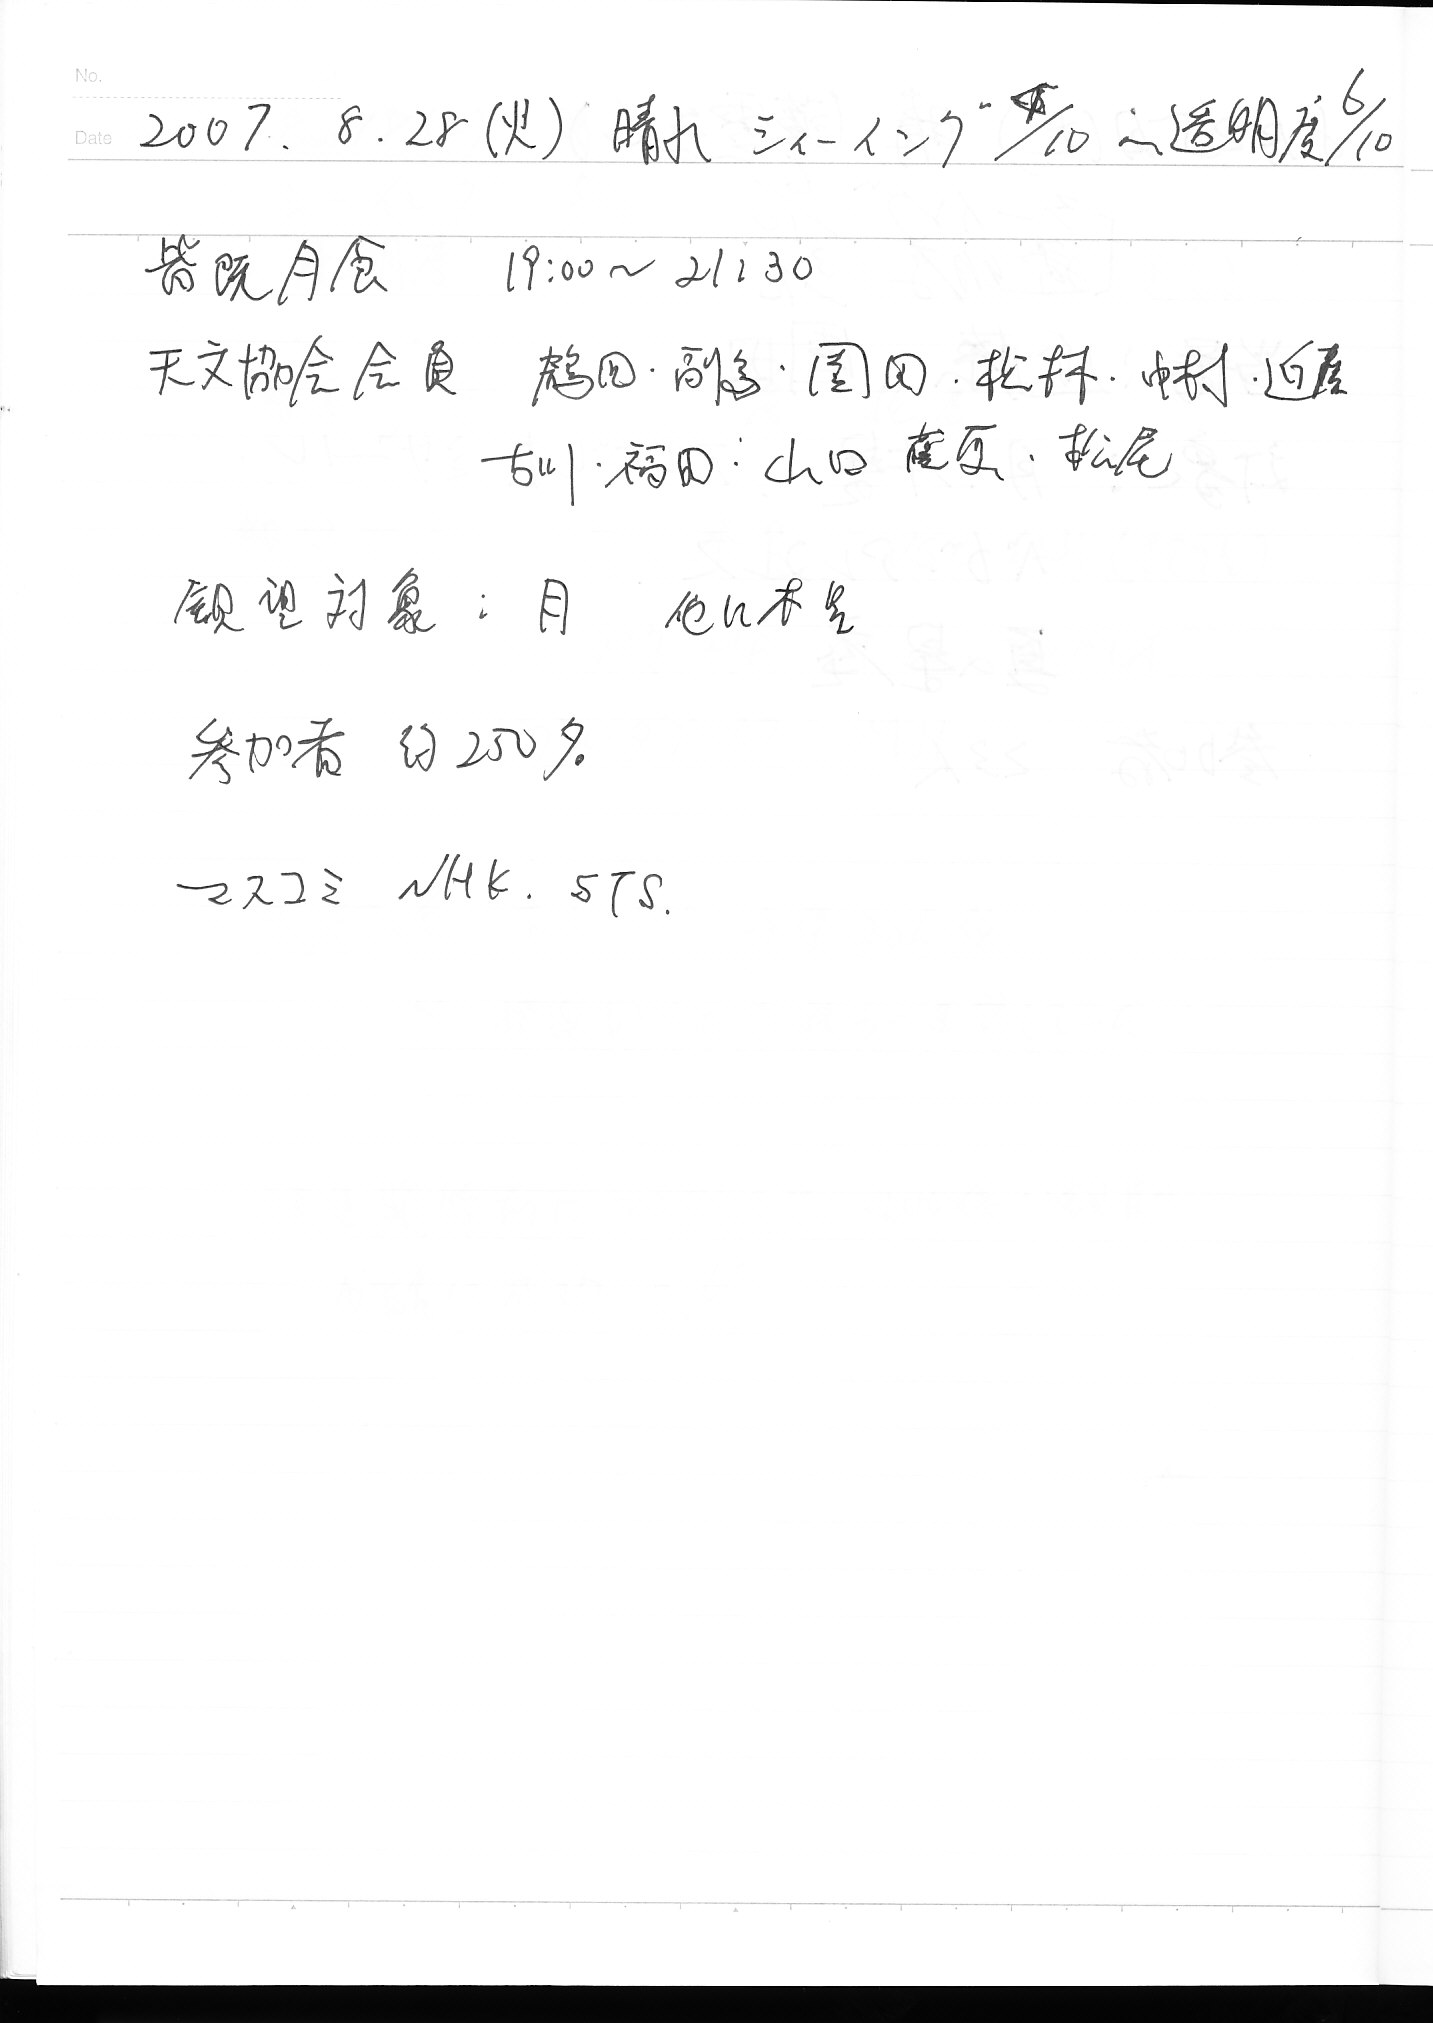 No.
Date 2007. 8. 28 (火) 晴れ シィーイング /10 透明度 6/10
皆既月食 19:00〜21:30
天文協会会員 鶴田・副島・園田・松林・中村・近
古川・福田・山口 ・松尾
観望対象:月 他に木星
参加者 約250名
マスコミ NHK. STS.